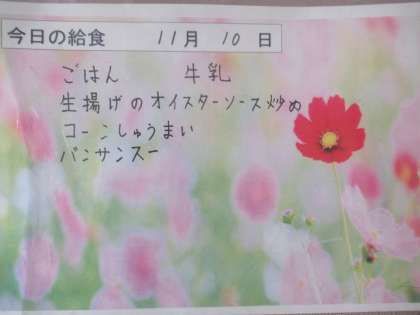 今日の給食 11月 10日
ごはん 牛乳
生揚げのオイスターソース炒め
コーンしゅうまい
バンサンスー